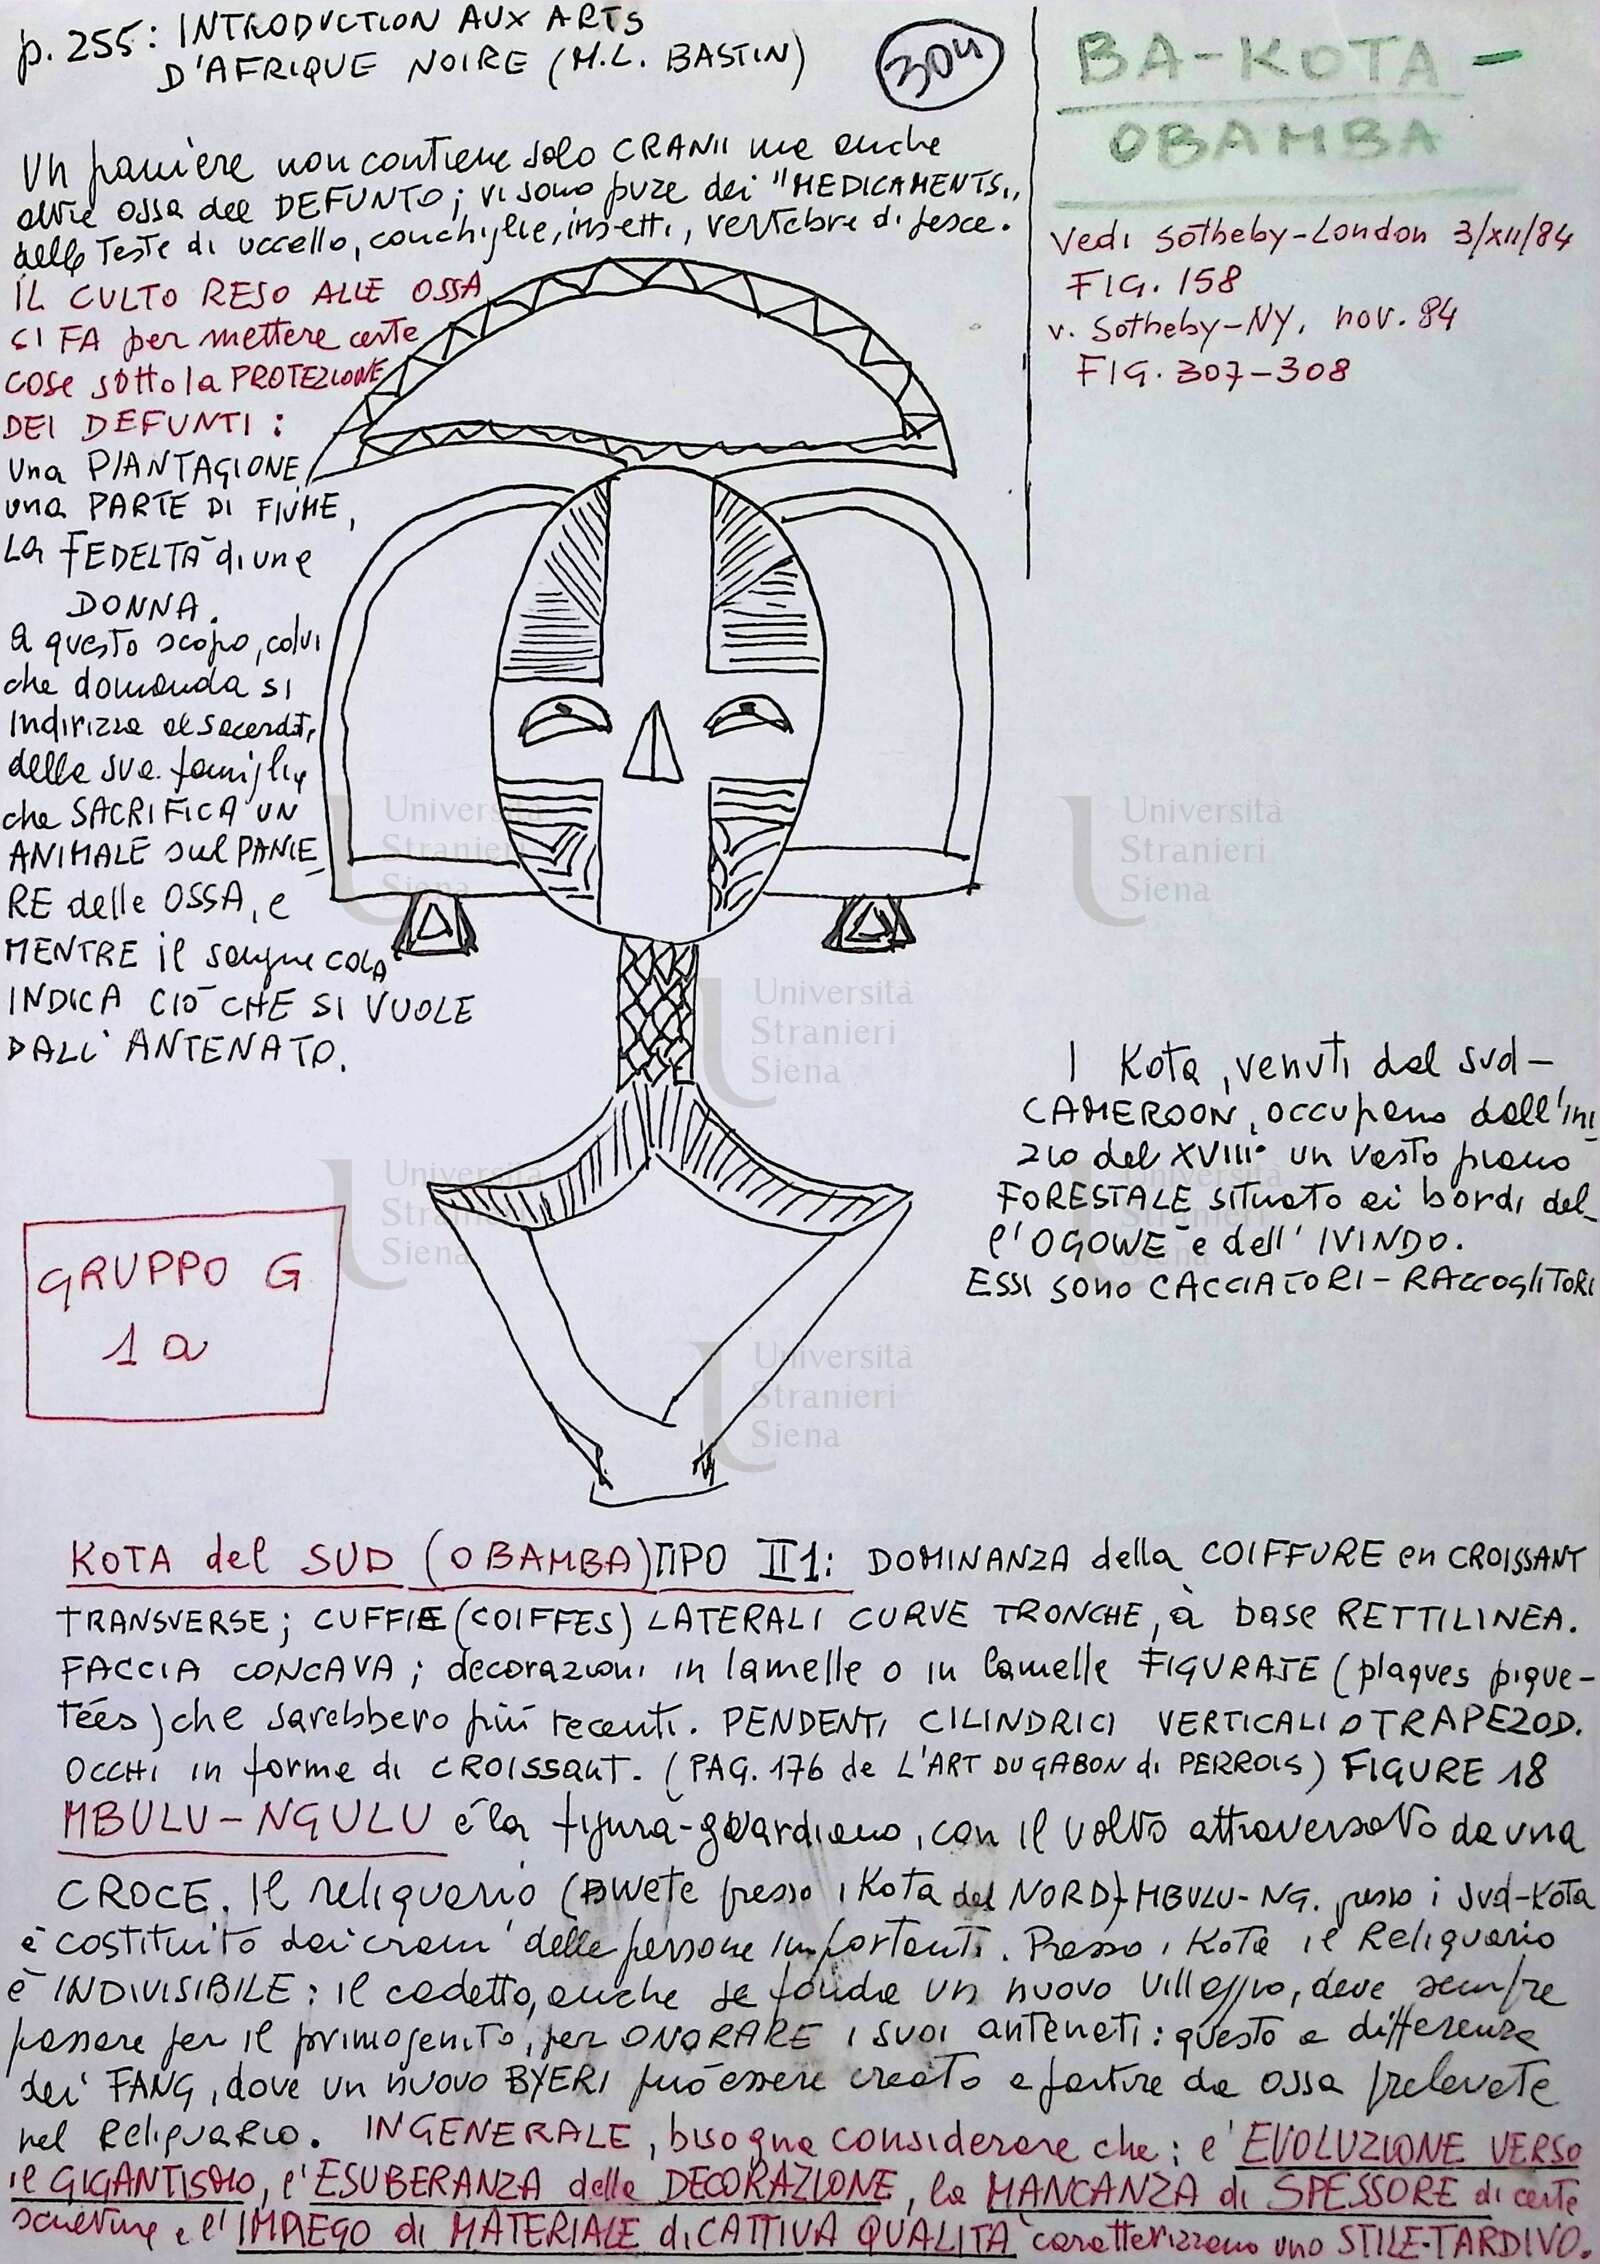 p. 255: INTRODUCTION AUX ARTS
D'AFRIQUE NOIRE (M.L. BASTIN)
304
BA-KOTA -
OBAMBA
Vedi Sotheby-London 3/XII/84
FIG. 158
v. Sotheby-NY, nov. 84
FIG. 307-308
Un paniere non contiene solo CRANII ma anche
altre OSSA del DEFUNTO; vi sono pure dei "MEDICAMENTS,,
delle Teste di uccello, conchiglie, insetti, vertebre di pesce.
IL CULTO RESO ALLE OSSA
SI FA per mettere certe
COSE sotto la PROTEZIONE
DEI DEFUNTI:
una PIANTAGIONE,
una PARTE DI FIUME,
La FEDELTÀ di una
DONNA.
a questo scopo, colui
che domanda si
Indirizza al sacerdote
della sua famiglia
che SACRIFICA UN
ANIMALE sul PANIE-
RE delle OSSA, e
MENTRE il sangue COLA
INDICA CIÒ CHE SI VUOLE
DALL'ANTENATO.
I Kota, venuti dal sud-
CAMEROON, occupano dall'ini-
zio del XVIII° un vasto piano
FORESTALE situato ai bordi del-
l'OGOWÈ e dell'IVINDO.
ESSI sono CACCIATORI-RACCOGLITORI
GRUPPO G
1a
KOTA del SUD (OBAMBA) TIPO II1: DOMINANZA della COIFFURE en CROISSANT
TRANSVERSE; CUFFIE (COIFFES) LATERALI CURVE TRONCHE, à base RETTILINEA.
FACCIA CONCAVA; decorazioni in lamelle o in lamelle FIGURATE (plaques pique-
tées) che sarebbero più recenti. PENDENTI CILINDRICI VERTICALI o TRAPEZOD.
OCCHI in forme di CROISSANT. (PAG. 176 de L'ART DU GABON di PERROIS) FIGURE 18
MBULU-NGULU è la figura-guardiano, con il volto attraversato da una
CROCE. Il reliquario (BWETE presso i Kota del NORD) MBULU-NG. presso i sud-Kota
è costituito dai crani delle persone importanti. Presso i Kota il Reliquario
è INDIVISIBILE: il cadetto, anche se fonda un nuovo villaggio, deve sempre
passare per il primogenito, per ONORARE i suoi antenati: questo a differenza
dei FANG, dove un nuovo BYERI può essere creato a partire da ossa prelevate
nel Reliquario. IN GENERALE, bisogna considerare che: l'EVOLUZIONE VERSO
il GIGANTISMO, l'ESUBERANZA della DECORAZIONE, la MANCANZA di SPESSORE di certe
sculture e l'IMPIEGO di MATERIALE di CATTIVA QUALITÀ caratterizzano uno STILE TARDIVO.
Università
Stranieri
Siena
Università
Stranieri
Siena
Università
Stranieri
Siena
Università
Stranieri
Siena
Università
Stranieri
Siena
Università
Stranieri
Siena